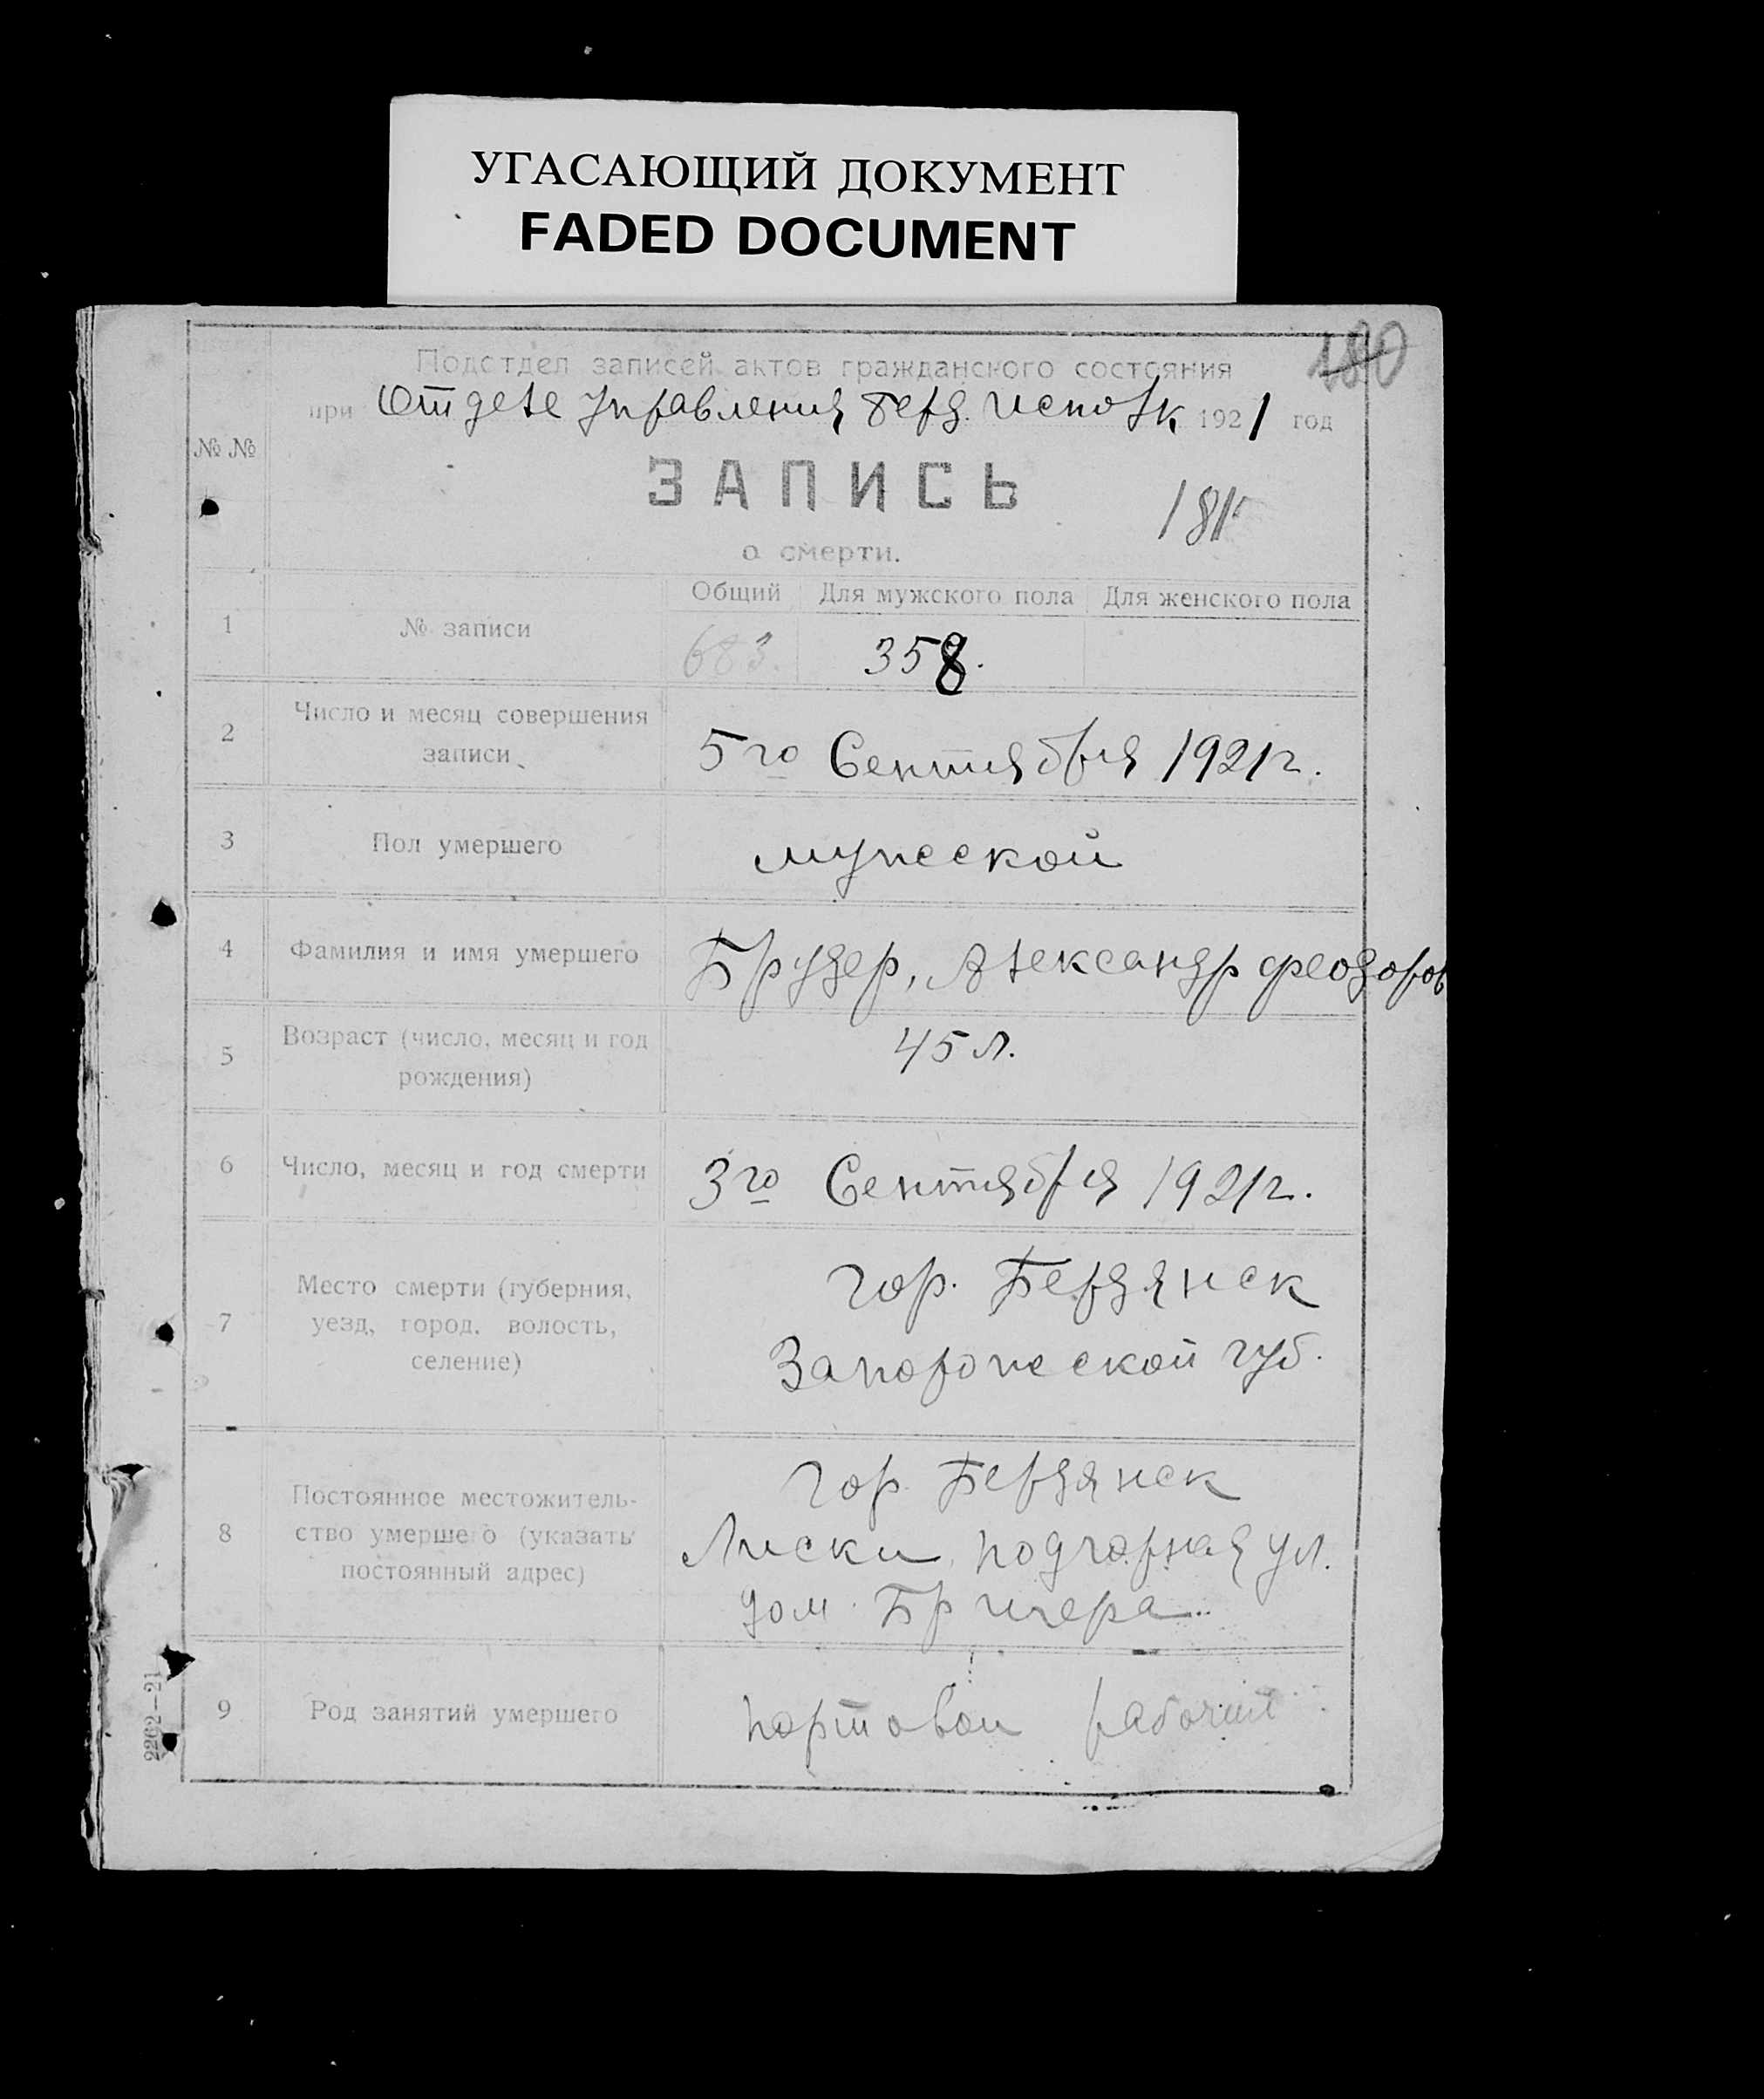 УГАСАЮЩИЙ ДОКУМЕНТ
FADED DOCUMENT
180
Подотдел записей актов гражданского состояния
при Отделе Управления Берд. Исполк 1921 год
№ №
ЗАПИСЬ
181
о смерти.
Общий Для мужского пола Для женского пола
1 № записи 683. 358.
2 Число и месяц совершения
записи 5го Сентября 1921г.
3 Пол умершего мужской
4 Фамилия и имя умершего Брудер, Александр Феодоров
5 Возраст (число, месяц и год
рождения) 45 л.
6 Число, месяц и год смерти 3го Сентября 1921г.
7 Место смерти (губерния,
уезд, город, волость,
селение)
гор. Бердянск
Запорожской губ.
8 Постоянное местожитель-
ство умершего (указать
постоянный адрес)
гор. Бердянск
Лиски, подгорная ул.
дом
9 Род занятий умершего портовой рабочий
2262—21